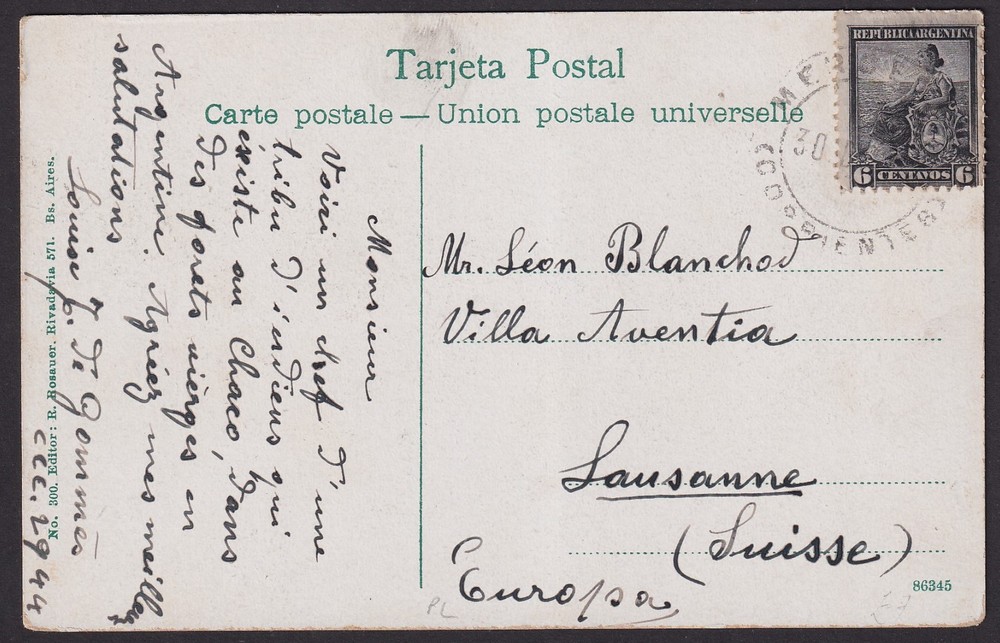 Tarjeta Postal
Carte postale — Union postale universelle
REPÚBLICA ARGENTINA
6 CENTAVOS 6
30
CORRIENTES
Monsieur
Voiri un chef d'une
tribu d'indiens qui
éxiste au Chaco, dans
des forets vièrges en
Argentine. Agréez mes meilles
salutations
Louise J. de Gommés
CCC. 2944
Mr. Léon Blanchod
Villa Aventia
Lausanne
(Suisse)
Europa
PL
86345
No. 300. Editor: R. Rosauer. Rivadavia 571. Bs. Aires.